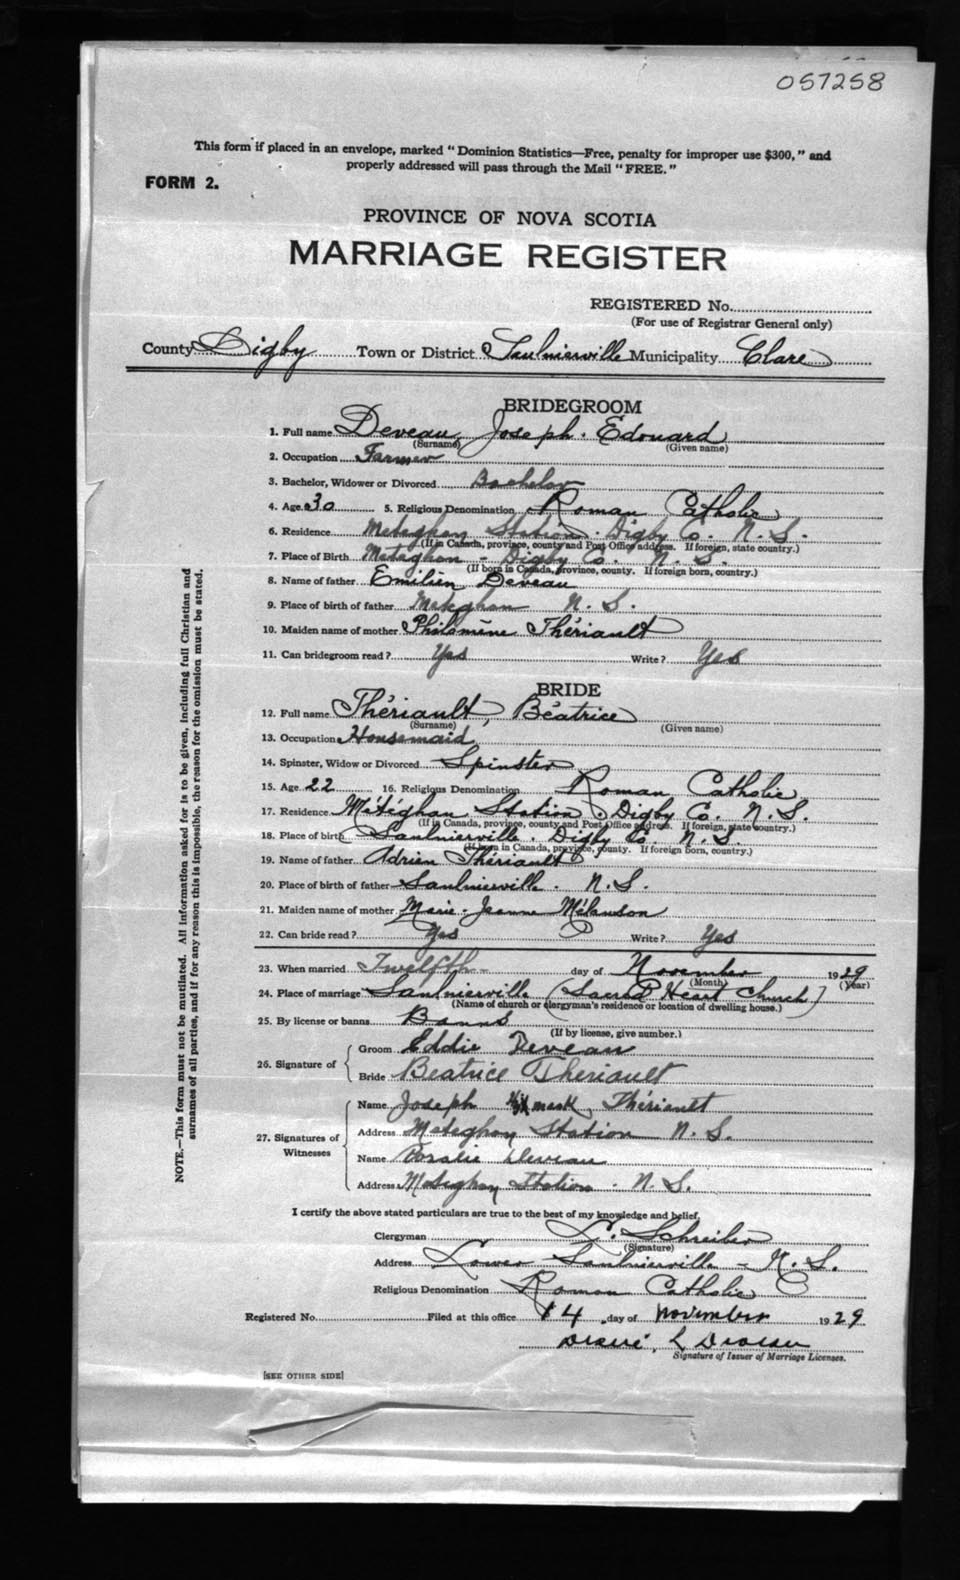 057258
This form if placed in an envelope, marked "Dominion Statistics—Free, penalty for improper use $300," and
properly addressed will pass through the Mail "FREE."
FORM 2.
PROVINCE OF NOVA SCOTIA
MARRIAGE REGISTER
REGISTERED No.
(For use of Registrar General only)
County Digby Town or District Saulnierville Municipality Clare
BRIDEGROOM
1. Full name Deveau, Joseph Edouard
(Surname) (Given name)
2. Occupation Farmer
3. Bachelor, Widower or Divorced Bachelor
4. Age 30 5. Religious Denomination Roman Catholic
6. Residence Meteghan Station Digby Co. N. S.
(If in Canada, province, county and Post Office address. If foreign, state country.)
7. Place of Birth Meteghan - Digby Co. N. S.
(If born in Canada, province, county. If foreign born, country.)
8. Name of father Emilien Deveau
9. Place of birth of father Meteghan N. S.
10. Maiden name of mother Philomène Thériault
11. Can bridegroom read? Yes Write? Yes
BRIDE
12. Full name Thériault, Béatrice
(Surname) (Given name)
13. Occupation Housemaid
14. Spinster, Widow or Divorced Spinster
15. Age 22 16. Religious Denomination Roman Catholic
17. Residence Météghan Station, Digby Co. N. S.
(If in Canada, province, county and Post Office address. If foreign, state country.)
18. Place of birth Saulnierville. Digby Co. N. S.
(If born in Canada, province, county. If foreign born, country.)
19. Name of father Adrien Thériault
20. Place of birth of father Saulnierville. N. S.
21. Maiden name of mother Marie-Jeanne Mélanson
22. Can bride read? Yes Write? Yes
23. When married Twelfth day of November 1929
(Month) (Year)
24. Place of marriage Saulnierville (Sacred Heart Church)
(Name of church or clergyman's residence or location of dwelling house.)
25. By license or banns Banns
(If by license, give number.)
26. Signature of Groom Eddie Deveau
Bride Beatrice Theriault
27. Signatures of Witnesses
Name Joseph his X mark Thériault
Address Meteghan Station N. S.
Name Rosalie Deveau
Address Meteghan Station. N. S.
I certify the above stated particulars are true to the best of my knowledge and belief.
Clergyman L. Schreiber
(Signature)
Address Lower Saulnierville - N. S.
Religious Denomination Roman Catholic
Registered No. Filed at this office 14 day of November 1929
Signature of Issuer of Marriage Licenses.
[SEE OTHER SIDE]
NOTE.—This form must not be mutilated. All information asked for is to be given, including full Christian and
surnames of all parties, and if for any reason this is impossible, the reason for the omission must be stated.